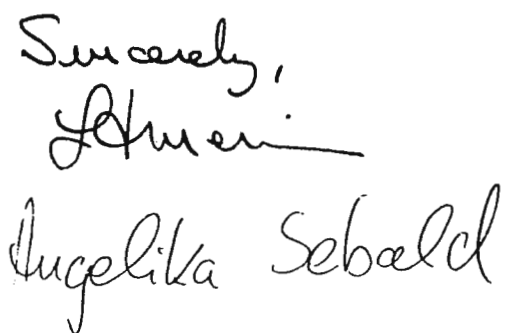 Sincerely,
Angelika Sebald